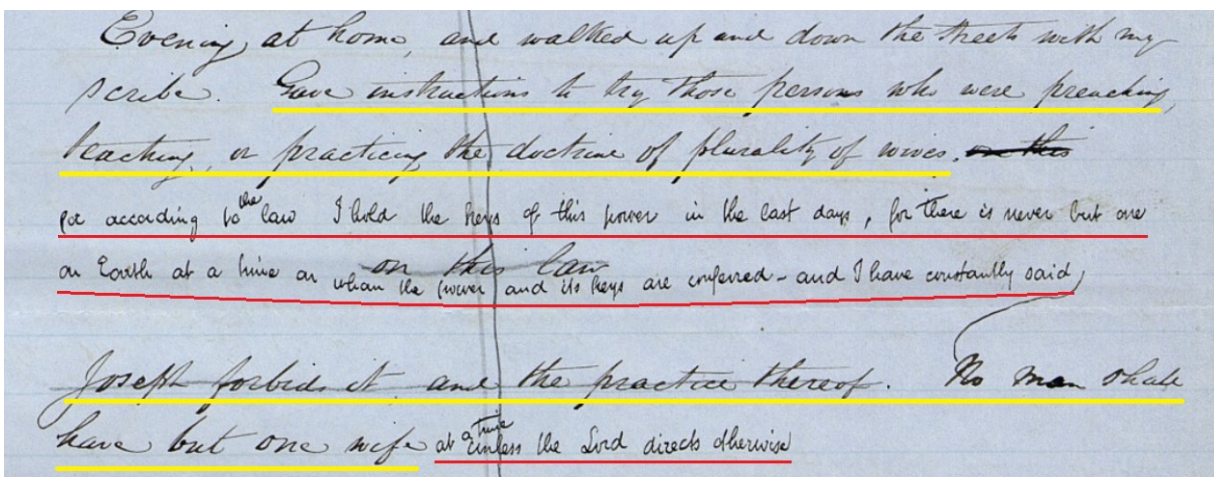 Evening, at home, and walked up and down the streets with my
scribe. Gave instructions to try those persons who were preaching,
teaching, or practicing the doctrine of plurality of wives. on this
for according to the law I hold the keys of this power in the last days, for there is never but one
on this law
on Earth at a time on whom the power and its keys are conferred - and I have constantly said
Joseph forbids it and the practice thereof. No man shall
have but one wife at a time unless the Lord directs otherwise